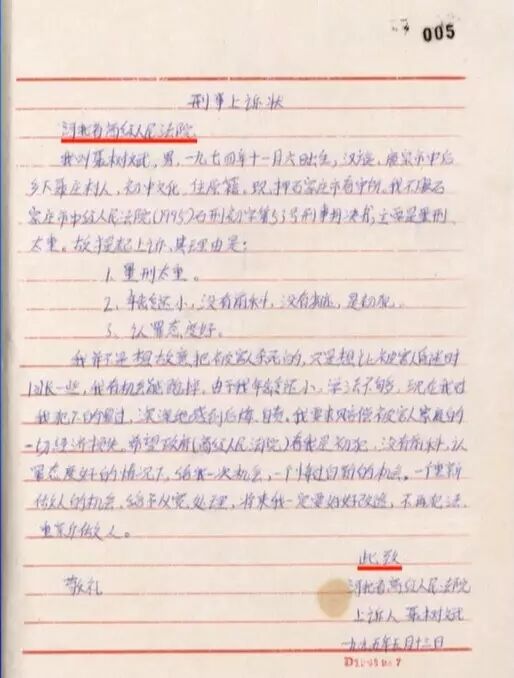 005
刑事上诉状
河北省高级人民法院
我叫聂树斌,男,一九七四年十一月六日出生,汉族,鹿泉市申后
乡下聂庄村人,初中文化,住原籍,现押石家庄市看守所,我不服石
家庄市中级人民法院(1995)石刑初字第53号刑事判决书,主要是量刑
太重。故提起上诉,其理由是:
1、量刑太重。
2、年龄还小,没有前科,没有劣迹,是初犯。
3、认罪态度好。
我并不是想故意把被害人杀死的,只是想让被害人昏迷时
间长一些,我有机会能脱掉,由于我年龄还小,学法不够,现在我对
我犯下的罪过,深深地感到后悔、自责。我要求赔偿被害人家庭的
一切经济损失。希望政府(高级人民法院)看我是初犯,没有前科,认
罪态度好的情况下,给我一次机会,一个悔过自新的机会。一个重新
做人的机会,给予从宽处理,将来我一定要好好改造,不再犯法,
重新做人。
此致
敬礼
河北省高级人民法院
上诉人 聂树斌
一九九五年五月十三日